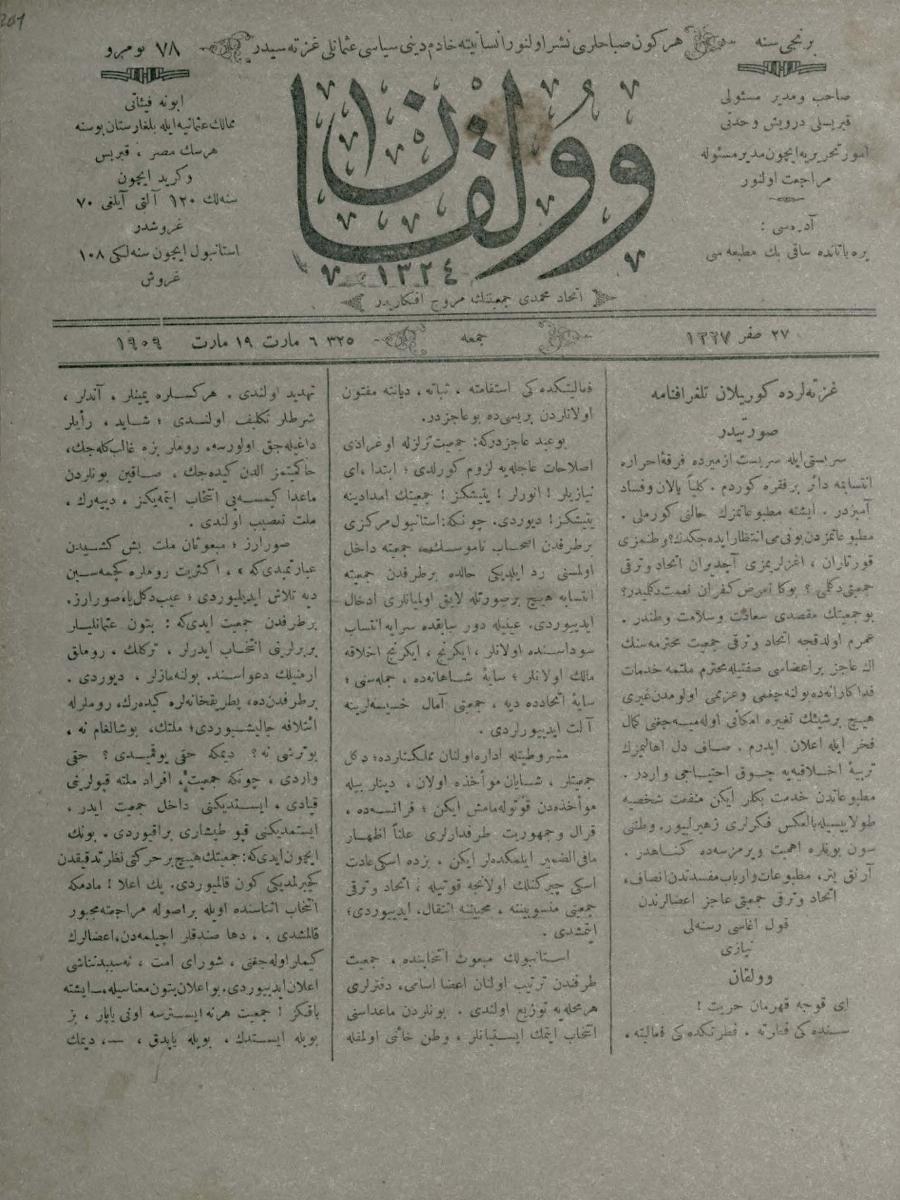 برنجی سنه
هركون صباحلری نشر اولنور انسانیته خادم دینی سیاسی عثمانلی غزته سیدر
٧٨ نومرو
صاحب و مدیر مسئولی
قبریسلی درویش وحدتی
امور تحریریه ایچون مدیر مسئوله
مراجعت اولنور
آدرسی :
یره باتانده ساقی بك مطبعه سی
وولقان
١٣٢٤
اتحاد محمدی جمعیتنك مروج افكاریدر
ابونه فیئاتی
ممالك عثمانیه ایله بلغارستان بوسنه
هرسك مصر ، قبریس
وكرید ایچون
سنه لك ١٢٠ آلتی آیلغی ٧٠
غروشدر
استانبول ایچون سنه لكی ١٠٨
غروش
٢٧ صفر ١٣٢٧
جمعه
٣٢٥ ٦ مارت ١٩ مارت ١٩٠٩
غزته لرده كوریلان تلغرافنامه
صورتیدر
سربستی ایله سربست ازمیرده فرقۀ احراره
انتسابمه دائر بر فقره كوردم . كلیاً یالان وفساد
آمیزدر . ایشته مطبوعاتمزك حالنی كورملی .
مطبوعاتمزدن بونی می انتظار ایده جكدك؟ وطنمزی
قورتاران ، اغزلریمزی آچدیران اتحاد وترقی
جمعیتی دكلمی ؟ بوكا تعرض كفران نعمت دكلمیدر؟
بو جمعیتك مقصدی سعادت وسلامت وطندر .
عمرم اولدقجه اتحاد وترقی جمعیت محترمه سنك
اك عاجز بر اعضاسی صفتیله محترم ملتمه خدمات
فداكارانه ده بولنه جغمی وعزمی اولومدن غیری
هیچ برشیئك تغییره امكانی اوله میه جغنی كمال
فخر ایله اعلان ایدرم . صاف دل اهالیمزك
تربیۀ اخلاقیه یه چوق احتیاجی واردر .
مطبوعاتدن خدمت بكلر ایكن منفعت شخصیه
طولاییسیله بالعكس فكرلری زهرلیور. وطنی
سون بویله اهمیت ویرمزسه ده كناهدر .
آرتق یتر. مطبوعات وارباب مفسدتدن انصاف.
اتحاد وترقی جمعیتی عاجز اعضالرندن
قول اغاسی رسنه لی
نیازی
وولقان
ای قوجه قهرمان حریت !
سنده كی قناته . فطرتكده كی فعالیته .
فعالیتكده كی استقامته ، ثباته . دیانته مفتون
اولانلردن بریسی ده بو عاجزدر.
بو عبد عاجز دركه: جمعیت تزلزله اوغرادی
اصلاحات عاجله یه لزوم كورلدی ؛ ابتدا ، ای
نیازیلر ! انورلر ! یتیشكز ! جمعیتك امدادینه
یتیشكز! دیوردی. چونكه: استانبول مركزی
برطرفدن اصحاب ناموسك جمعیته داخل
اولمسنی رد ایلدیكی حالده برطرفدن جمعیته
انتسابه هیچ برصورتله لایق اولمیانلری ادخال
ایدییوردی. عینیله دور سابقده سرایه انتساب
سوداسنده اولانلر ، ایكرنج ، ایكرنج اخلاقه
مالك اولانلر ؛ سایۀ شاهانه ده ، جمله سنی ؛
سایۀ اتحادده دیه ، جمعیتی آمال خسیسه لرینه
آلت ایدییورلردی .
مشروطیتله اداره اولنان مملكتلرده؛ دكل
جمعیتلر ، شایان مؤاخذه اولان ، دینلر بیله
مؤاخذه دن قوتوله مامش ایكن ؛ فرانسه ده ،
قرال وجمهوریت طرفدارلری علناً اظهار
مافی الضمیر ایلمكده لر ایكن . بزده اسكی عادت
اسكی چیركنلك اولانجه قوتیله ، اتحاد وترقی
جمعیتی منسوبیننه ، محیاتنه انتقال ایدییوردی؛
ایتمشدی .
استانبولك مبعوث انتخابنده ، جمعیت
طرفندن ترتیب اولنان اعضا اسامی دفترلری
هر محله یه توزیع اولندی . بونلردن ماعداسنی
انتخاب ایتمك ایستیانلر ، وطن خائنی اولمقله
تهدید اولندی . هركسلره یمینلر . آندلر ،
شرطلر تكلیف اولندی ؛ شاید ، رأیلر
داغیله جق اولورسه. روملر بزه غالب كله جك،
حاكمیتمز الدن كیده جك . صاقین بونلردن
ماعدا كیمسه یی انتخاب ایتمیكز ، دییه رك .
ملت تعصیب اولندی .
صورارز ؛ مبعوثان ملت بش كشیدن
عبارتمیدی كه ، اكثریت روملره كچمه سین
دیه تلاش ایدیلیوردی ؛ عیب دكل یا، صورارز.
برطرفدن جمعیت ایدی كه : بتون عثمانلیلر
بربرلرینی انتخاب ایدرلر ، تركلك ، روملق
ارمنیلك دعواسنده بولنه مازلر . دیوردی .
برطرفدن ده، بطریقخانه لره كیده رك، روملر له
ائتلافه چالیشیوردی؛ ملتك. بو شالغام نه ،
بو ترشی نه ؟ دیمكه حقی یوقمیدی ؟ حقی
واردی ، چونكه جمعیت، افراد ملته قپولرینی
قپادی . ایستدیكنی داخل جمعیت ایدر .
ایستمدیكنی قپو طیشاری براقیوردی . بونك
ایچون ایدی كه: جمعیتك هیچ بر حركتی نظر تدقیقدن
كچیرلمدیكی كون قالمیوردی. پك اعلا ! مادمكه
انتخاب اثناسنده اویله بر اصوله مراجعته مجبور
قالمشدی . . دها صندقلر اچیلمه دن، اعضالرك
كیملر اوله جغنی ، شورای امت ، نه سببه مبنی
اعلان ایدییوردی، بو اعلان بتون معناسیله ــ ایشته
باقكز ! جمعیت هرنه ایسترسه اونی یاپار ، بز
بویله ایستدك . بویله یاپدق ، ــ، دیمك